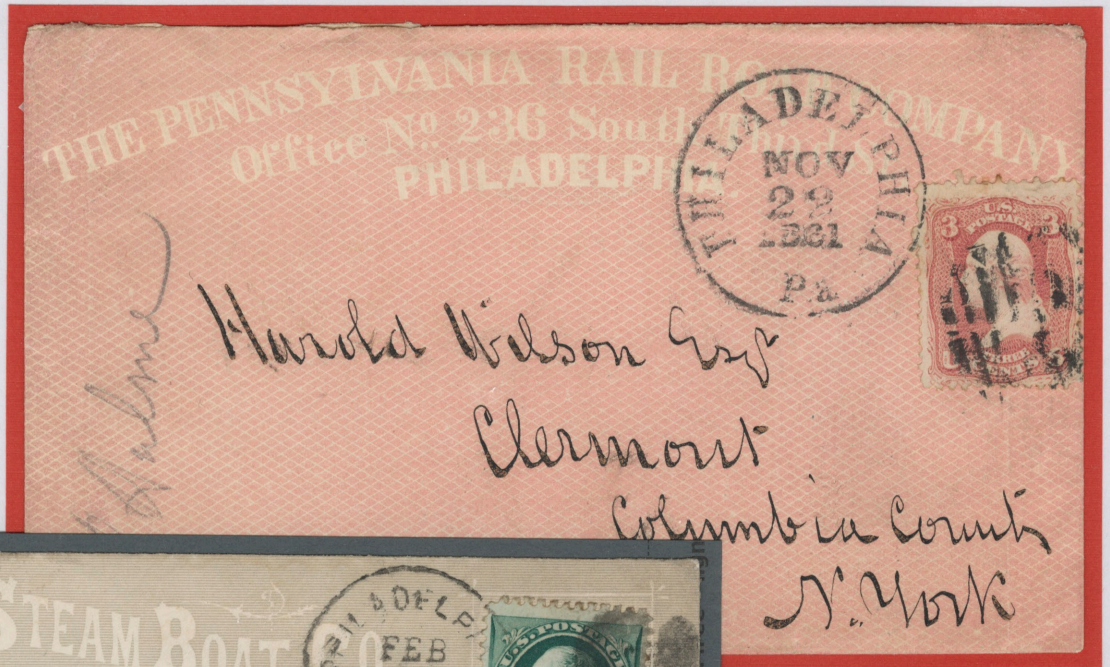 THE PENNSYLVANIA RAIL ROAD COMPANY
Office No. 236 South Third St.
PHILADELPHIA.
PHILADELPHIA
NOV
29
1861
Pa
3 U.S. 3
POSTAGE
THREE
CENTS
Harold Wilson Esqr
Clermont
Columbia County
N. York
STEAM BOAT CO
PHILADELP
FEB
U.S. POSTAGE